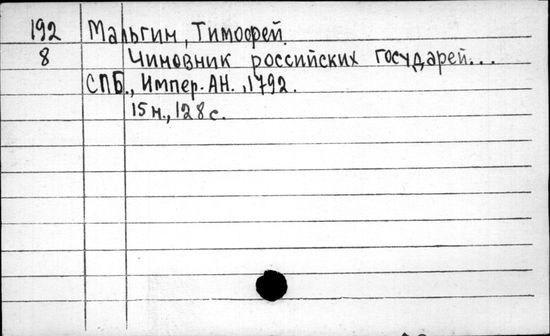 192 Мальгин, Тимофей.
8 Чиновник российских государей...
СПБ., Импер. АН., 1792.
15 н., 128 с.